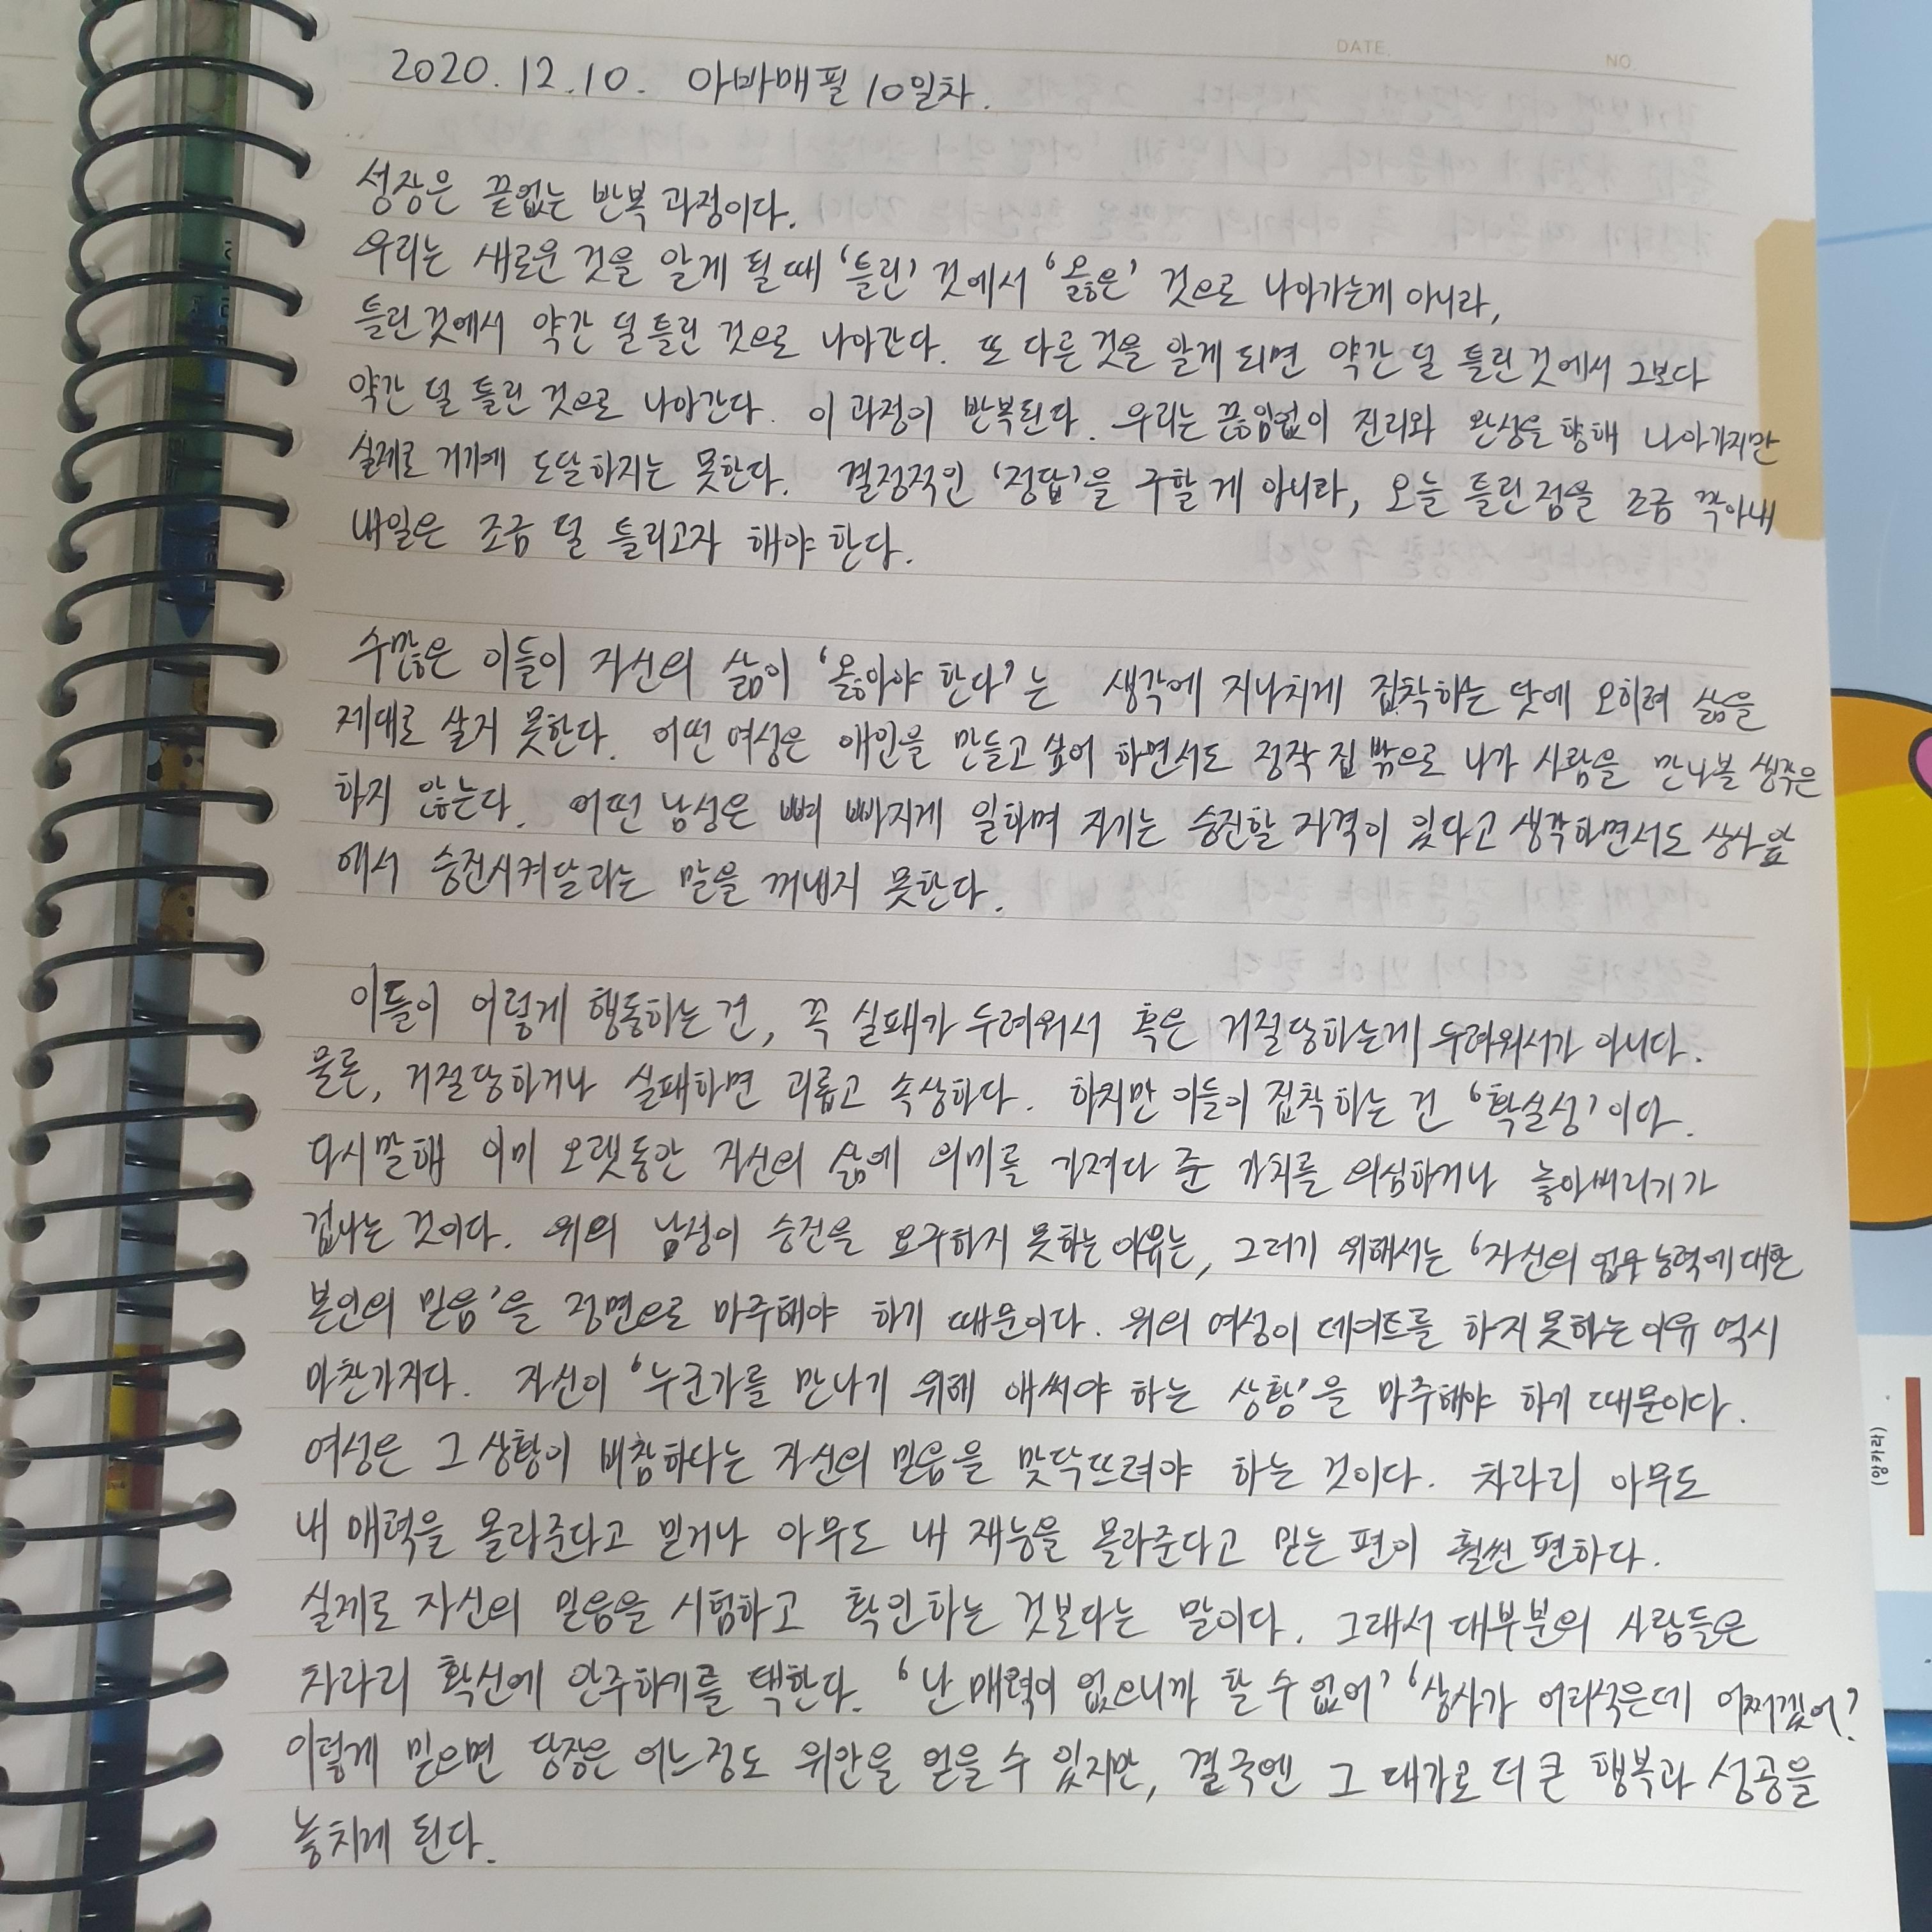 DATE.
NO.
2020. 12. 10. 아바매필 10일차.
성장은 끝없는 반복 과정이다.
우리는 새로운 것을 알게 될 때 '틀린' 것에서 '옳은' 것으로 나아가는게 아니라,
틀린 것에서 약간 덜 틀린 것으로 나아간다. 또 다른 것을 알게 되면 약간 덜 틀린 것에서 그보다
약간 덜 틀린 것으로 나아간다. 이 과정이 반복된다. 우리는 끊임없이 진리와 완성을 향해 나아가지만
실제로 거기에 도달하지는 못한다. 결정적인 '정답'을 구할 게 아니라, 오늘 틀린 점을 조금 깍아내
내일은 조금 덜 틀리고자 해야 한다.
수많은 이들이 자신의 삶이 '옳아야 한다'는 생각에 지나치게 집착하는 탓에 오히려 삶을
제대로 살지 못한다. 어떤 여성은 애인을 만들고 싶어 하면서도 정작 집 밖으로 나가 사람을 만나볼 생각은
하지 않는다. 어떤 남성은 뼈 빠지게 일하며 자기는 승진할 자격이 있다고 생각하면서도 상사 앞
에서 승진시켜달라는 말을 꺼내지 못한다.
이들이 이렇게 행동하는 건, 꼭 실패가 두려워서 혹은 거절당하는게 두려워서가 아니다.
물론, 거절당하거나 실패하면 괴롭고 속상하다. 하지만 이들이 집착하는 건 '확실성'이다.
다시말해 이미 오랫동안 자신의 삶에 의미를 가져다 준 가치를 의심하거나 놓아버리기가
겁나는 것이다. 위의 남성이 승진을 요구하지 못하는 이유는, 그러기 위해서는 '자신의 업무 능력에 대한
본인의 믿음'을 정면으로 마주해야 하기 때문이다. 위의 여성이 데이트를 하지 못하는 이유 역시
마찬가지다. 자신이 '누군가를 만나기 위해 애써야 하는 상황'을 마주해야 하기 때문이다.
여성은 그 상황이 비참하다는 자신의 믿음을 맞닥뜨려야 하는 것이다. 차라리 아무도
내 매력을 몰라준다고 믿거나 아무도 내 재능을 몰라준다고 믿는 편이 훨씬 편하다.
실제로 자신의 믿음을 시험하고 확인하는 것보다는 말이다. 그래서 대부분의 사람들은
차라리 확신에 안주하기를 택한다. '난 매력이 없으니까 할 수 없어' '상사가 어리석은데 어쩌겠어?
이렇게 믿으면 당장은 어느정도 위안을 얻을 수 있지만, 결국엔 그 대가로 더 큰 행복과 성공을
놓치게 된다.